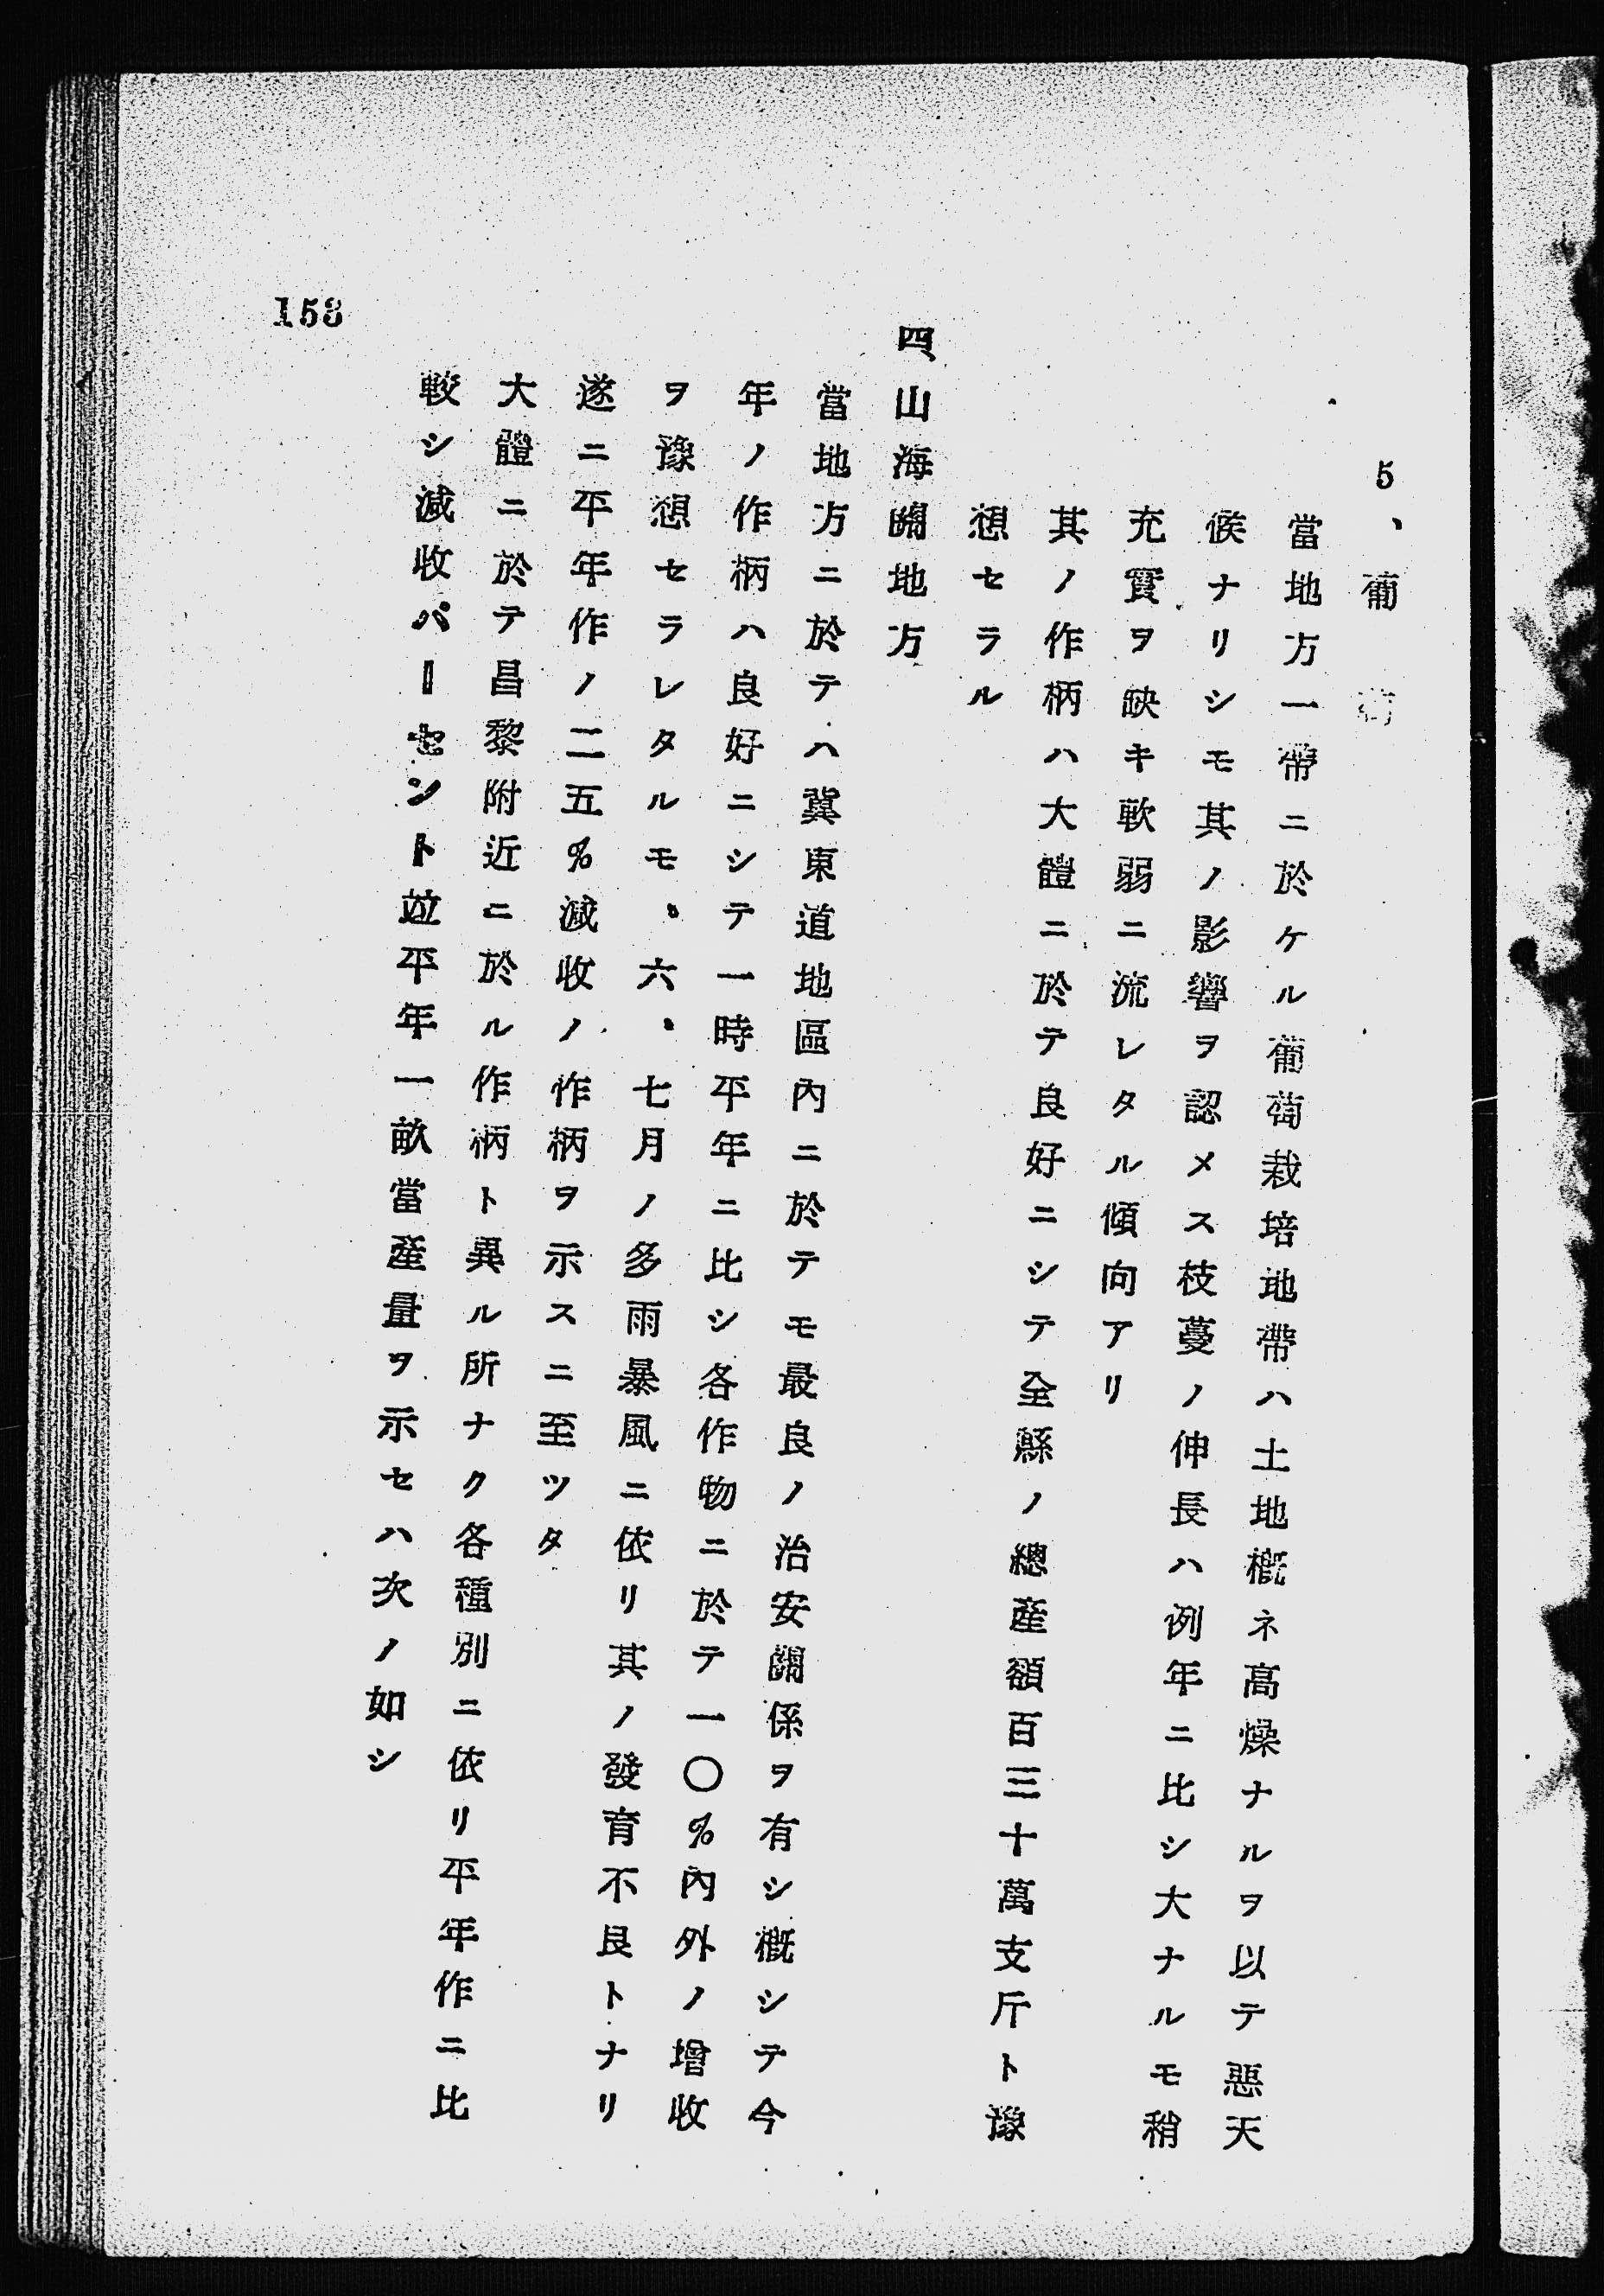 5、葡萄
當地方一帶ニ於ケル葡萄栽培地帶ハ土地概ネ高燥ナルヲ以テ惡天
候ナリシモ其ノ影響ヲ認メス枝蔓ノ伸長ハ例年ニ比シ大ナルモ稍
充實ヲ缺キ軟弱ニ流レタル傾向アリ
其ノ作柄ハ大體ニ於テ良好ニシテ全縣ノ總產額百三十萬支斤ト豫
想セラル
四、山海關地方
當地方ニ於テハ冀東道地區內ニ於テモ最良ノ治安關係ヲ有シ概シテ今
年ノ作柄ハ良好ニシテ一時平年ニ比シ各作物ニ於テ一〇%內外ノ增收
ヲ豫想セラレタルモ、六、七月ノ多雨暴風ニ依リ其ノ發育不良トナリ
遂ニ平年作ノ二五%減收ノ作柄ヲ示スニ至ツタ
大體ニ於テ昌黎附近ニ於ル作柄ト異ル所ナク各種別ニ依リ平年作ニ比
較シ減收パーセント竝平年一畝當產量ヲ示セハ次ノ如シ
153